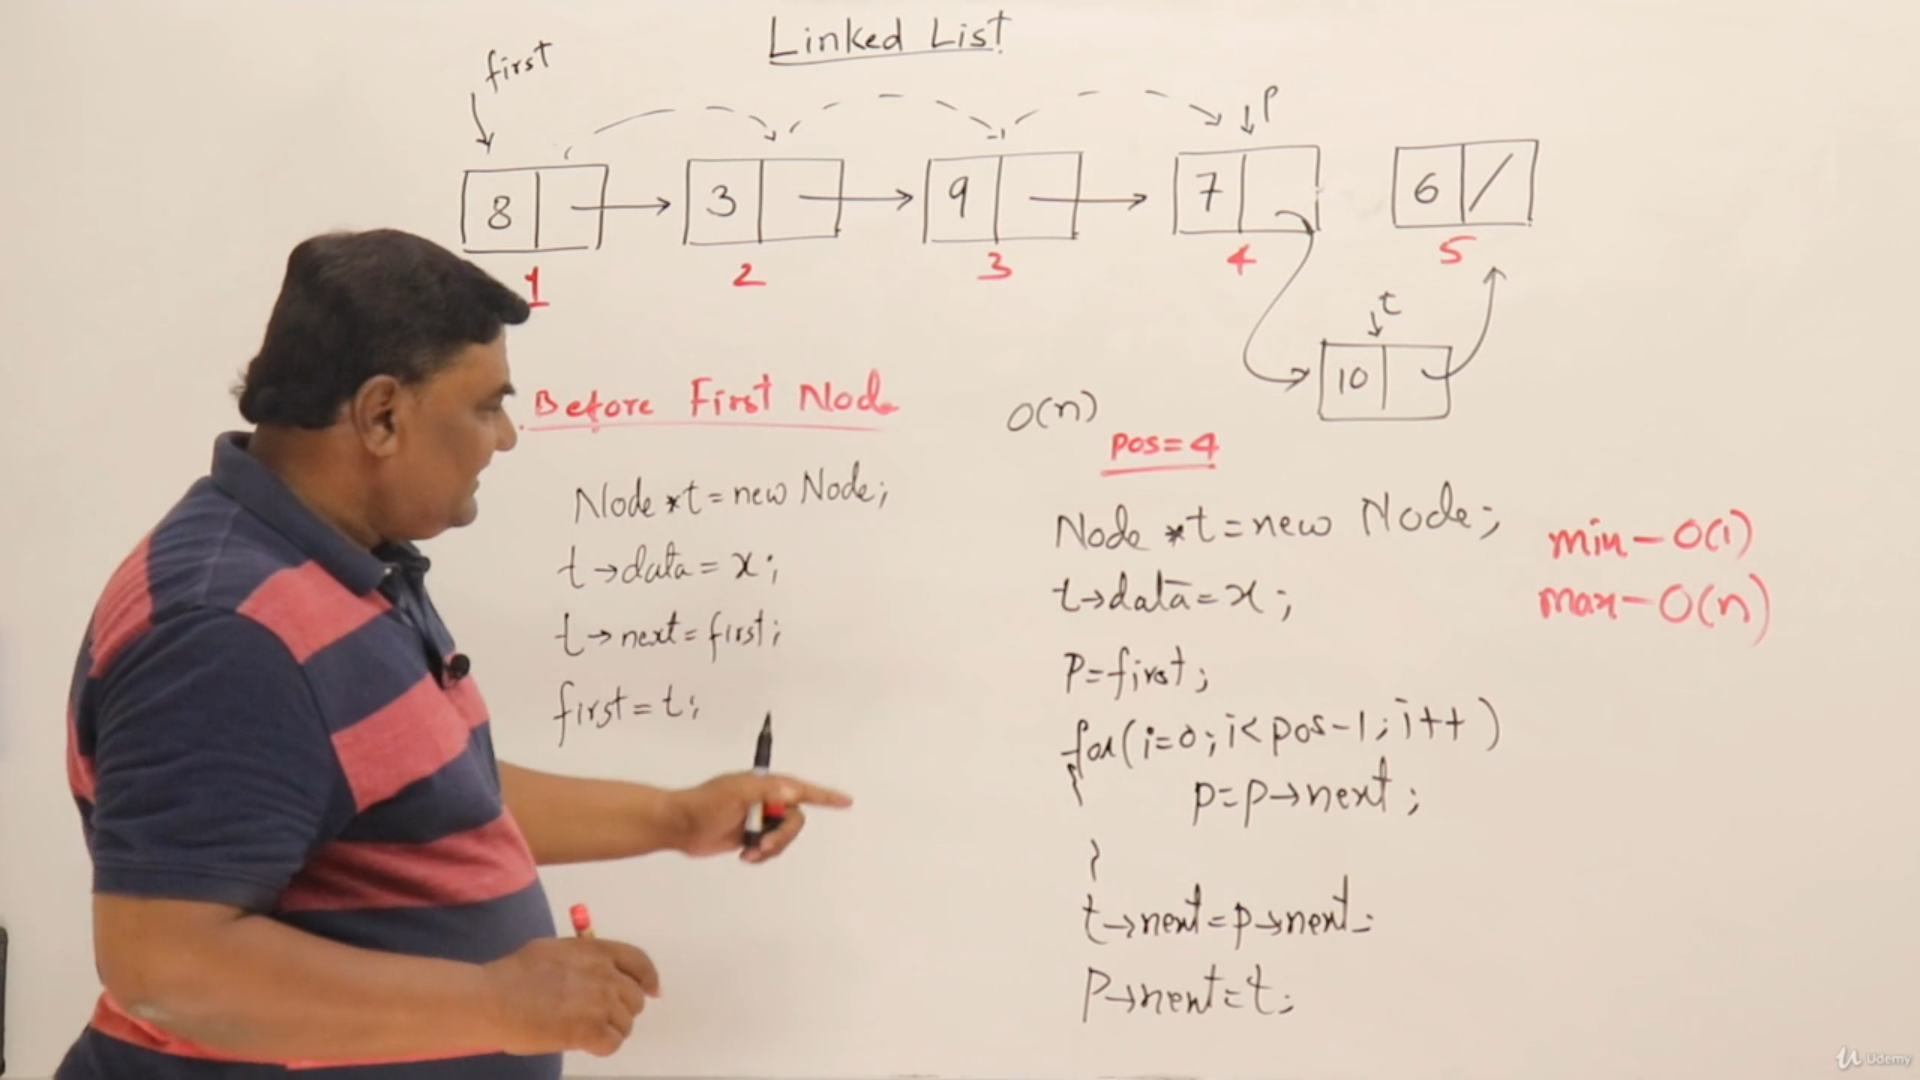 Linked List
first
p
8
3
9
7
6 /
1
2
3
4
5
t
10
Before First Node
O(n)
pos=4
Node *t=new Node;
t→data=x;
t→next=first;
first=t;
Node *t=new Node;
t→data=x;
P=first;
for(i=0;i<pos-1;i++)
{
p=p→next;
}
t→next=p→next;
P→next=t;
min-O(1)
max-O(n)
Udemy